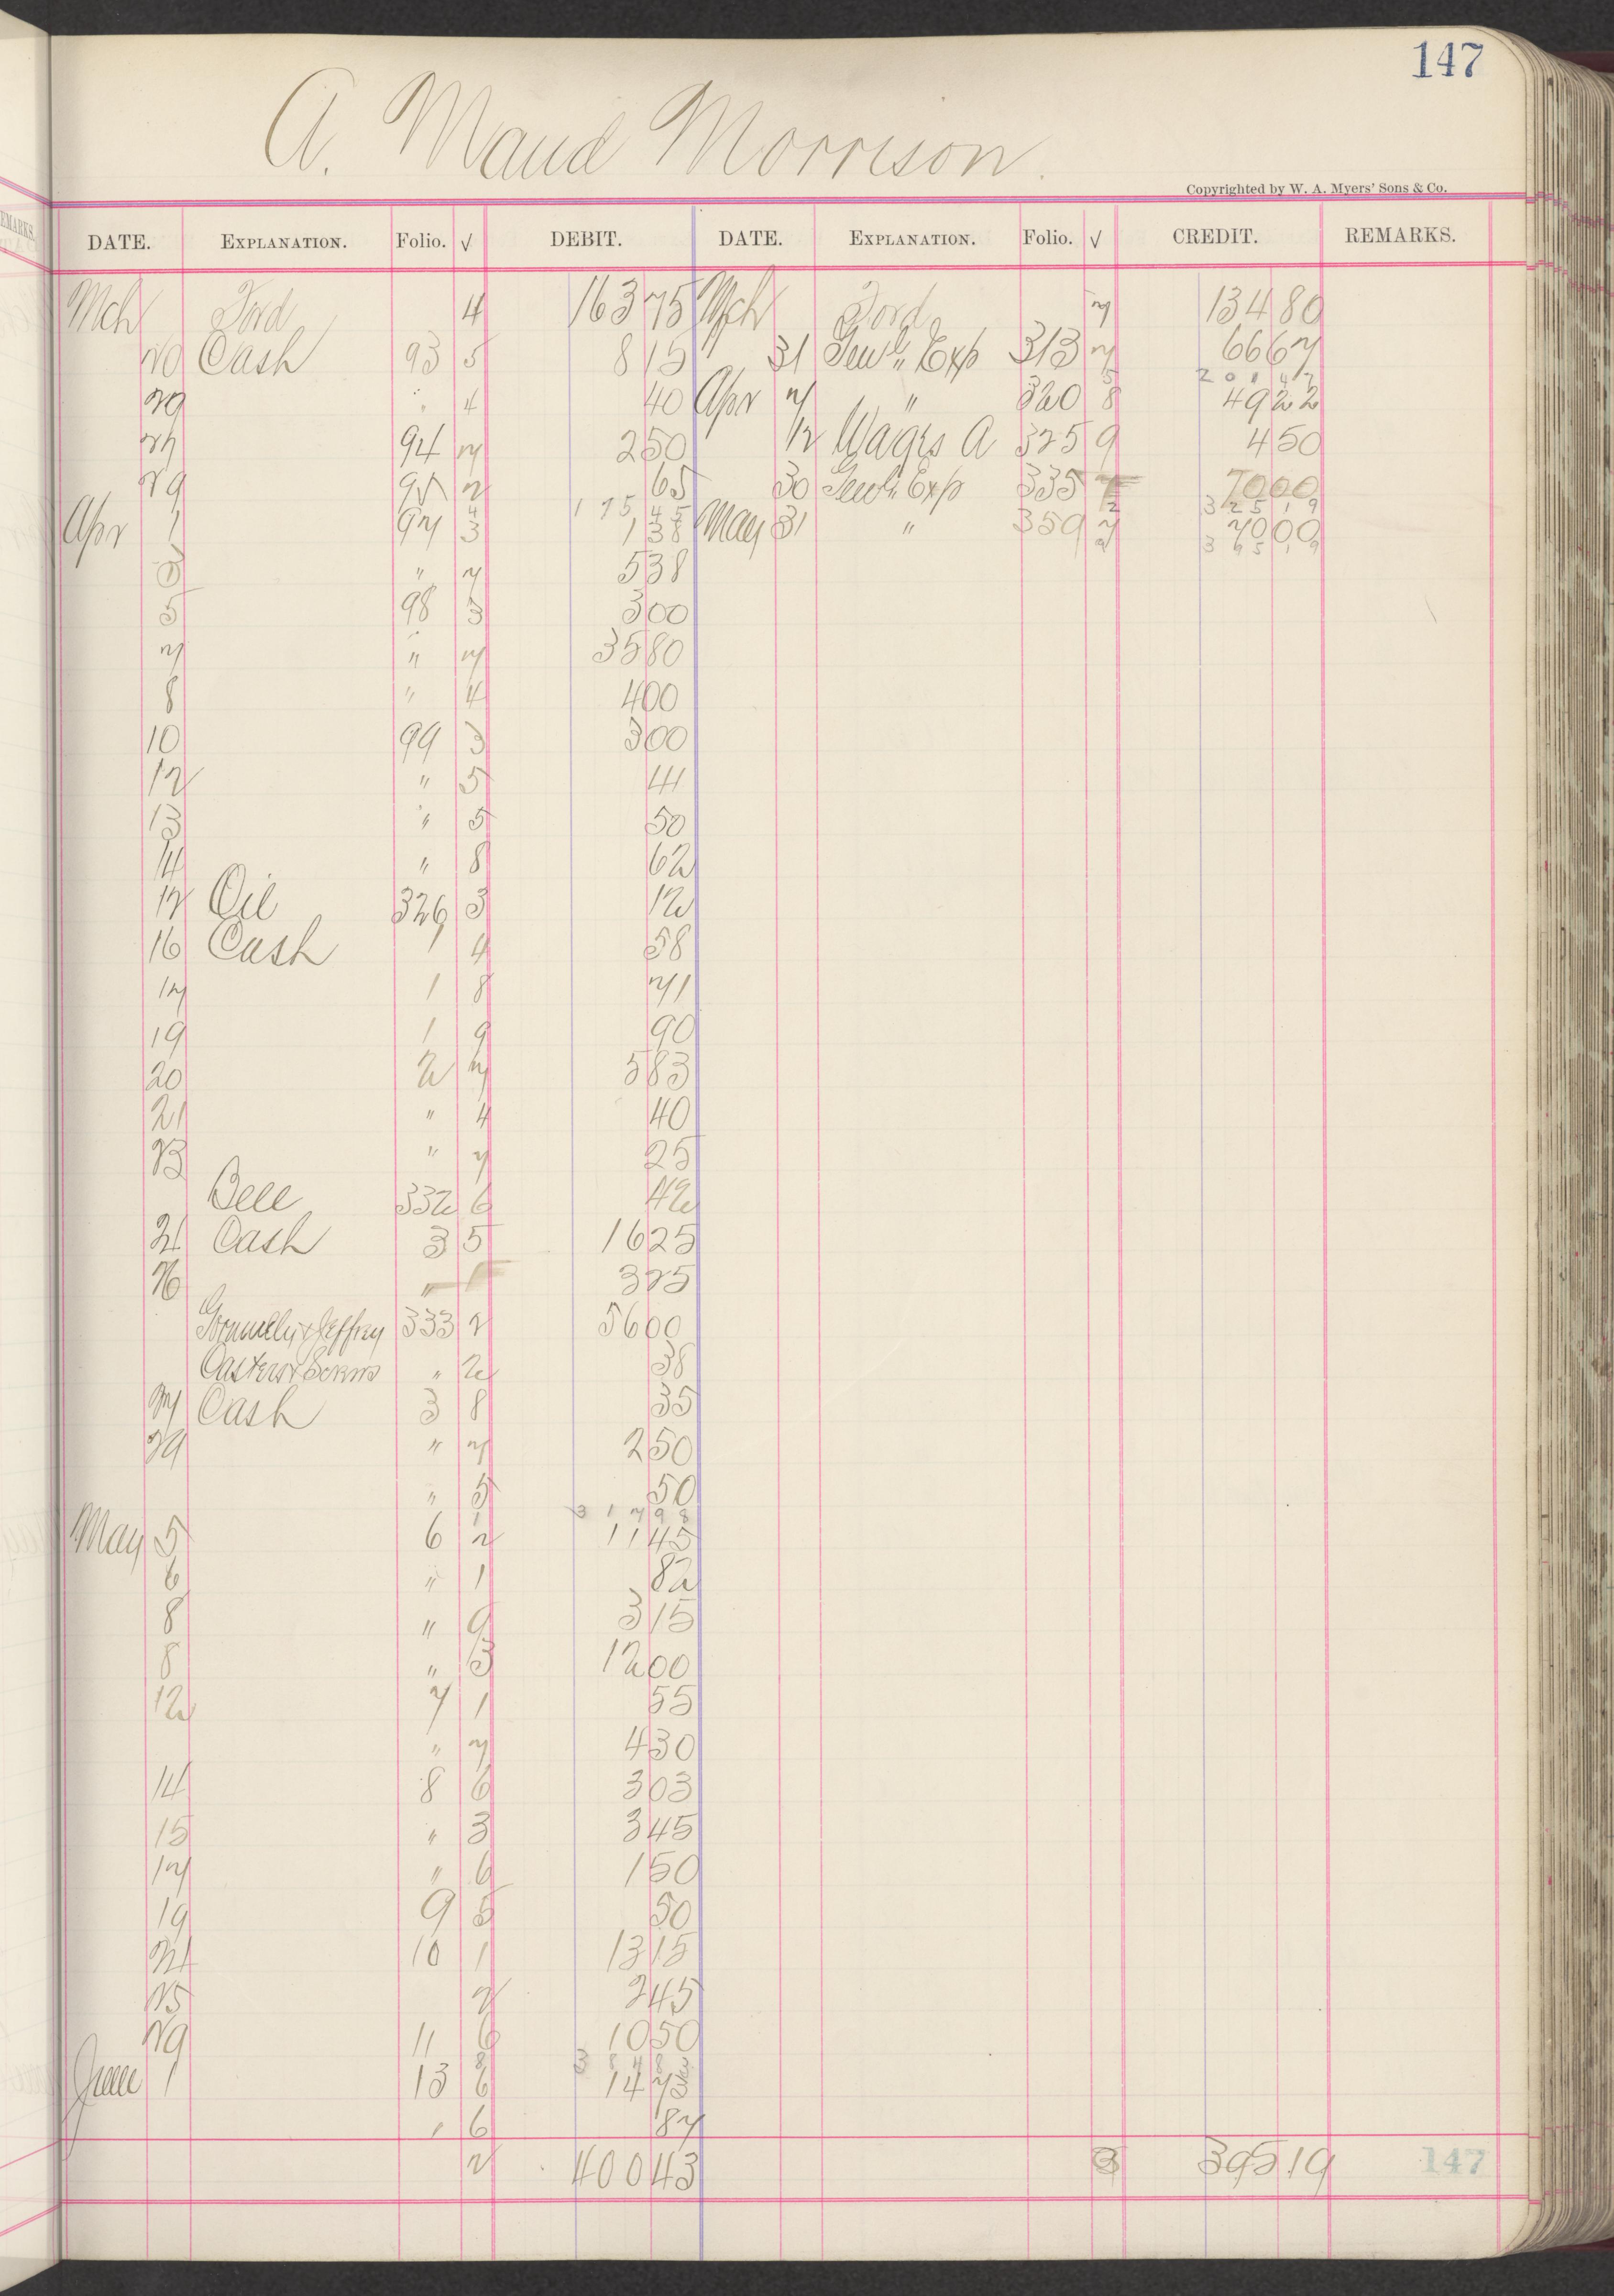 147
A. Maud Morrison.
Copyrighted by W. A. Myers' Sons & Co.
DATE. EXPLANATION. Folio. √ DEBIT. DATE. EXPLANATION. Folio. √ CREDIT. REMARKS.
Mch Ford 4 163 75 Mch Ford 7 134 80
20 Cash 93 5 8 15 31 Genl " Exp 313 7 66 67
201 47
29 " 4 40 Apr 7 " 320 8 49 22
27 94 7 2 50 12 Wages A 325 9 4 50
29 95 2 65 30 Genl Exp 335 7 70 00
175 45 325 19
Apr 1 97 3 1 38 May 31 " 359 7 70 00
395 19
3 " 7 5 38
5 98 3 3 00
7 " 7 35 80
8 " 4 4 00
10 99 3 3 00
12 " 5 41
13 " 5 50
14 " 8 62
12 Oil 326 3 12
16 Cash 1 4 58
17 1 8 71
19 1 9 90
20 2 7 5 83
21 " 4 40
23 " 7 25
Bell 332 6 42
24 Cash 3 5 16 25
26 " 3 25
Gormully & Jeffrey 333 2 56 00
Casters & Screws " 2 38
27 Cash 3 8 35
29 " 7 2 50
" 5 50
317 98
May 5 6 2 11 45
6 " 1 82
8 " 9 3 15
8 " 3 12 00
12 7 1 55
" 7 4 30
14 8 6 3 03
15 " 3 3 45
17 " 6 1 50
19 9 5 50
24 10 1 13 15
25 2 2 45
29 11 6 10 50
384 83
June 1 13 6 14 73
" 6 87
2 400 43 3 395 19 147